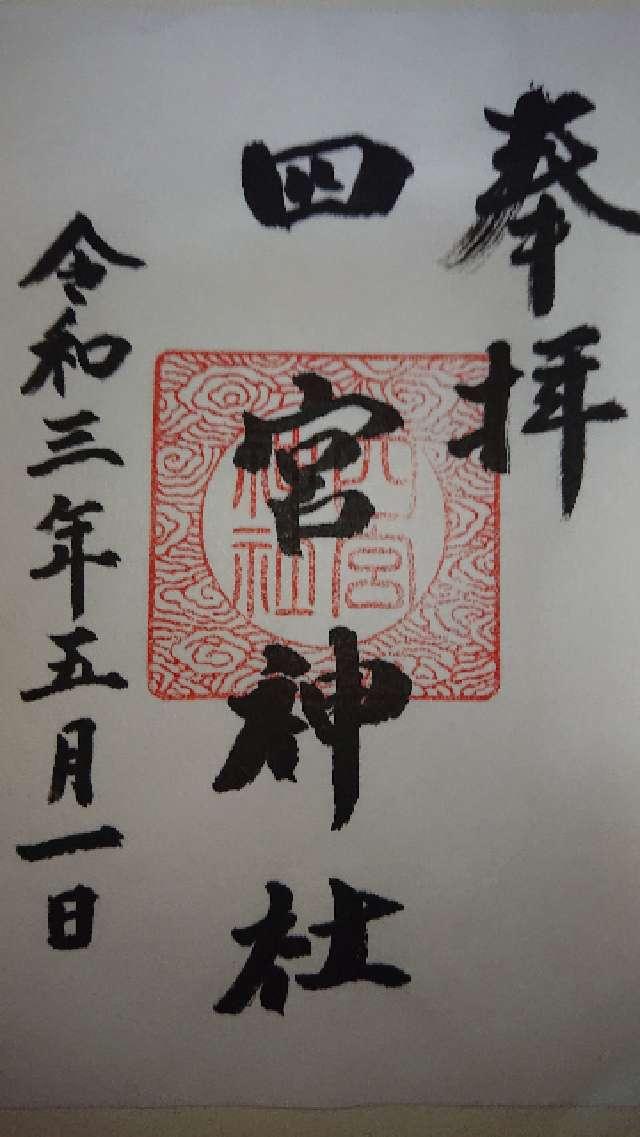 奉拝
四宮神社
四宮神社
令和三年五月一日